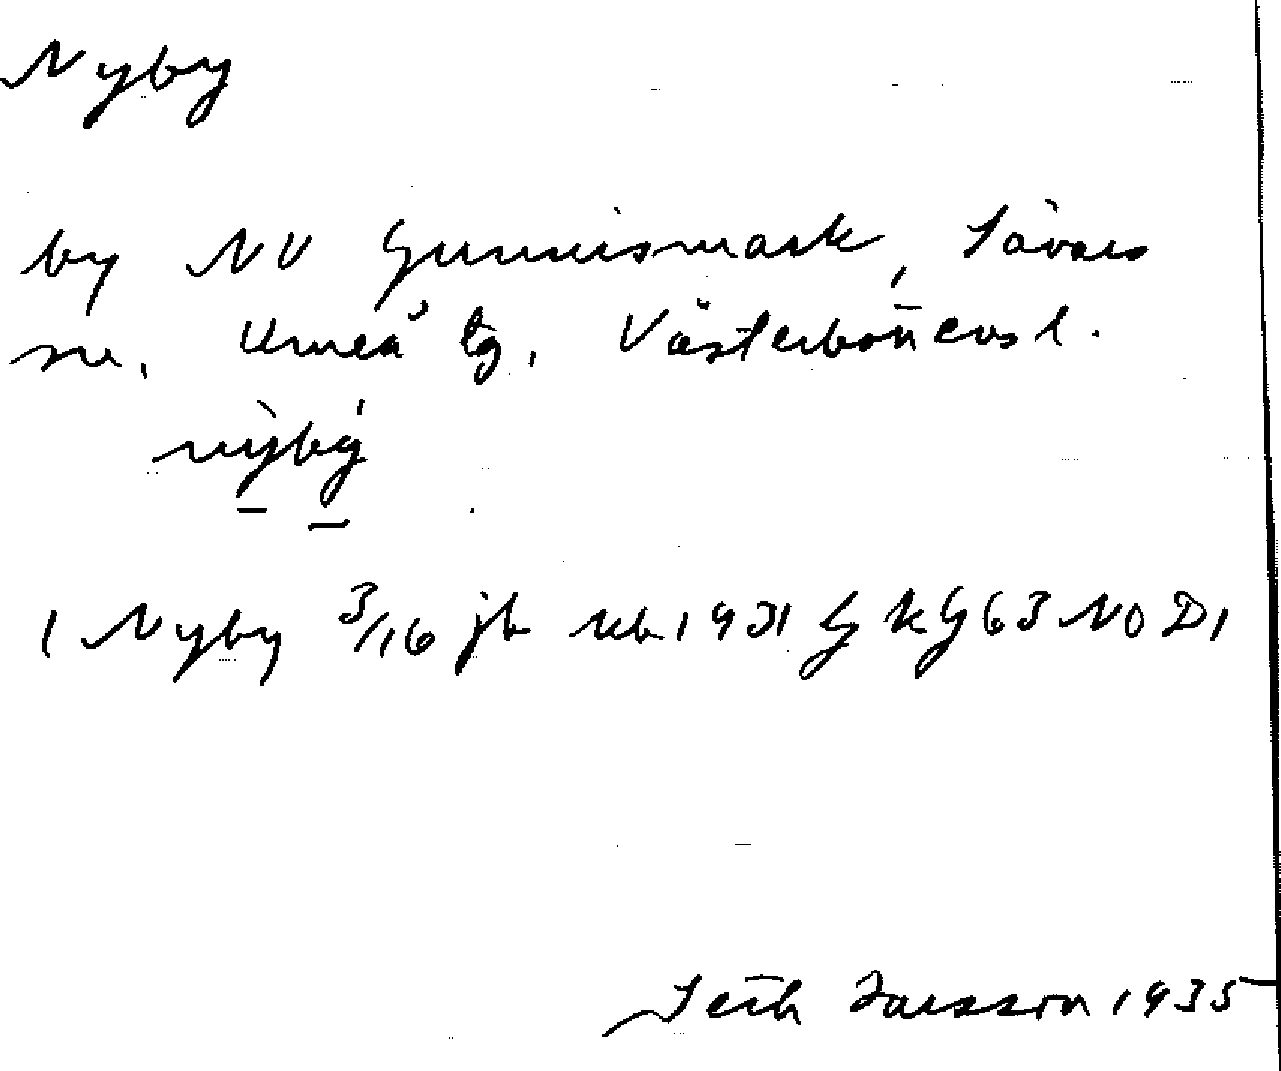 Nyby
by NV Gunnismark, Sävars
sn. Umeå tg. Västerbottens l.
nỳbý
1 Nyby 3/16 jb 1931 G K G 63 NO D1
Larsson 1935